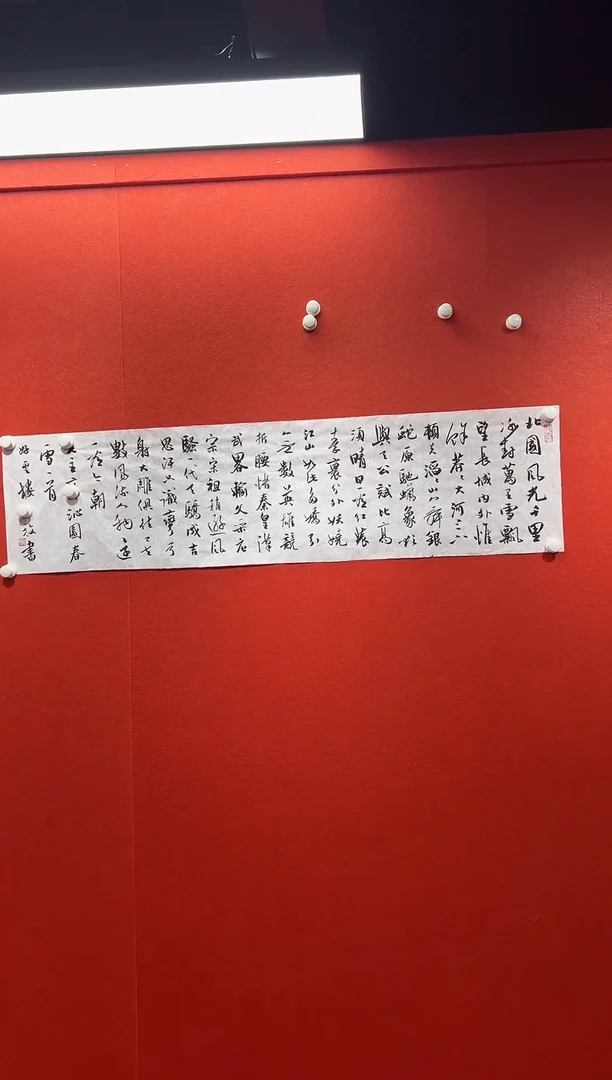 北國風光千里
冰封萬里雪飄
望長城内外惟
餘莽々大河上下
頓失滔々山舞銀
蛇原馳蠟象欲
與天公試比高
須晴日看紅裝
素裹分外妖嬈
江山如此多嬌引
無數英雄競
折腰惜秦皇漢
武畧輸文采唐
宗宋祖稍遜風
騷一代天驕成吉
思汗只識彎弓
射大雕俱往矣
數風流人物還
看今朝
主席沁園春
雪一首
樓書